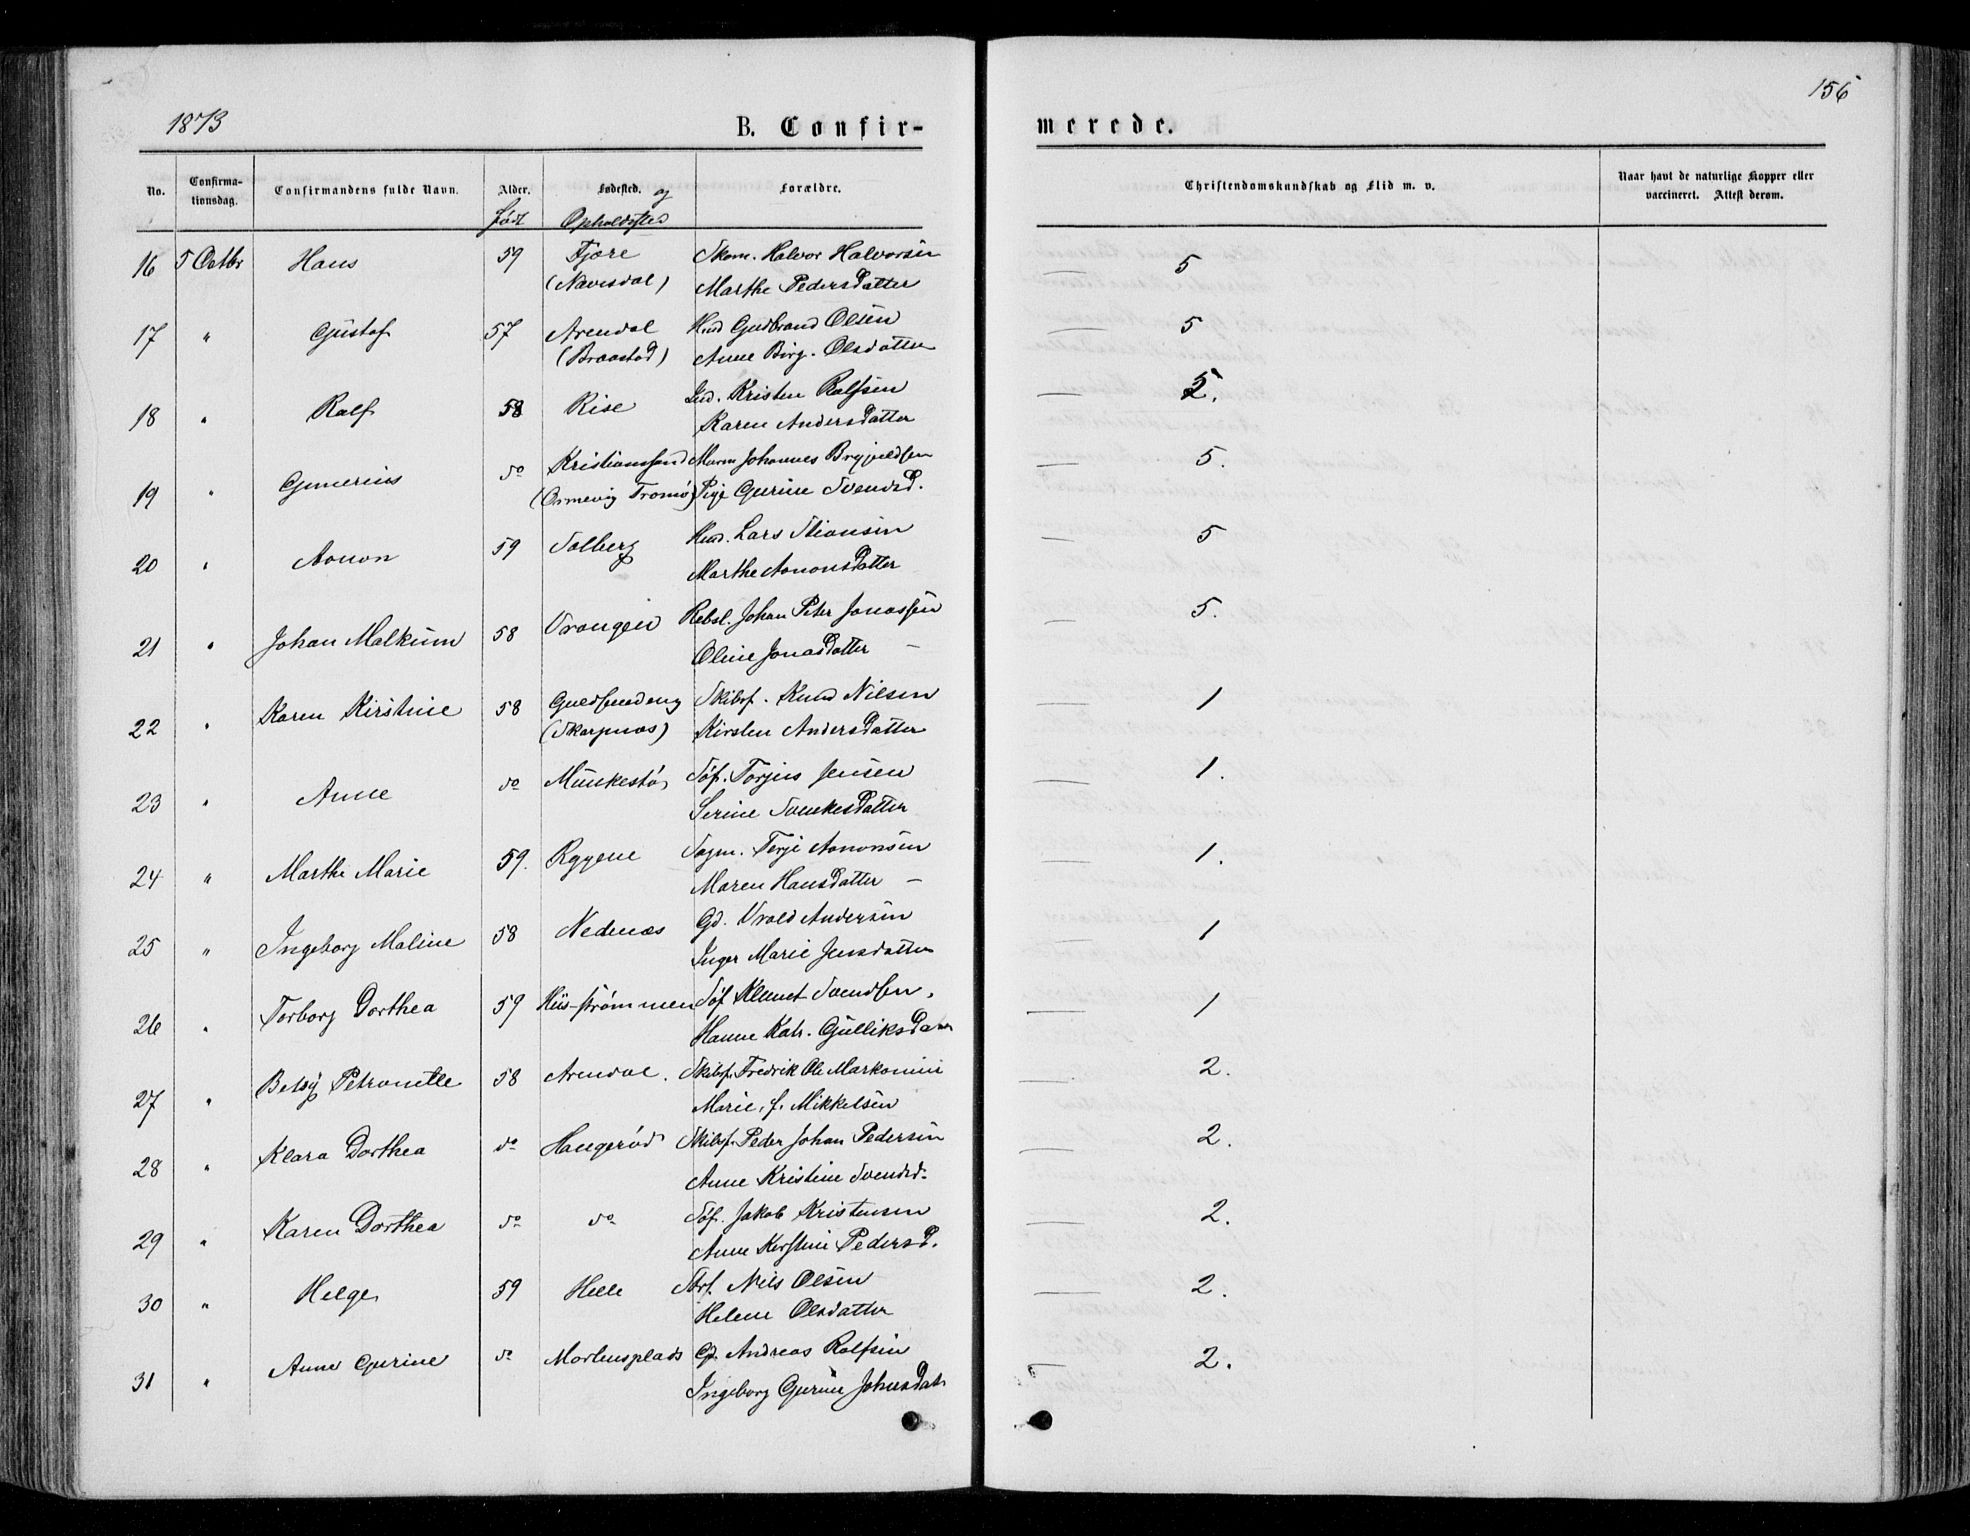 1873
B. Confir-
merede.
156
No.
Confirma-
tionsdag.
Confirmandens fulde Navn.
Alder.
født
Fødested. og
Opholdssted
Forældre.
Christendomskundskab og Flid m. v.
Naar havt de naturlige Kopper eller
vaccineret. Attest derom.
16 5 Octbr Hans 59 Fjære Skom. Halvor Halvorsen 5
(Navesdal) Marthe Pedersdatter
17 " Gustaf 57 Arendal Hmd Gudbrand Olsen 5
(Braastad) Anne Birg. Olsdatter
18 " Ralf 58 Rise Ind. Kristen Ralfsen 5.
Karen Andersdatter
19 " Gunerius do Kristianssand Johannes 5.
(Ormevig Tromø) Pige Gurine Svendsd.
20 " Aonon 59 Solberg Hmd. Lars Stiansen 5
Marthe Aononsdatter
21 " Johan Malkum 58 Vrangen Rebsl. Johan Peter Jonassen 5.
Oline Jonasdatter —
22 " Karen Kirstine 58 Guldsmedeng Skibsf. Knud Nilsen 1
(Skarpnæs) Kirsten Andersdatter
23 " Anne do Munkestø Søf. Torjus Jensen 1.
Serine Svenkesdatter
24 " Marthe Marie 59. Rygene Sagm. Terje Aononsen 1.
Maren Hansdatter —
25 " Ingeborg Maline 58 Nedenæs Gd. Vrold Andersen 1
Inger Marie Jensdatter
26 " Torborg Dorthea 59 Hiis-strømmen Søf Klemet Svendsen, 1
Hanne Kath. Gulliksdatter
27 " Betsy Petronelle 58 Arendal. Skibsf. Fredrik Ole 2.
Marie, f. Mikkelsen
28 " Klara Dorthea do Haugerød Skibsf. Peder Johan Pedersen 2.
Anne Kristine Svendsd.
29 " Karen Dorthea do do Søf. Jakob Kristensen 2.
Anne Kirstine Pedersd.
30 " Helge 59 Helle Nils Olsen 2.
Helene Olsdatter
31 " Anne Gurine do Mortensplads Gd. Andreas Rolfsen 2.
Ingeborg Gurine Johnsdatr